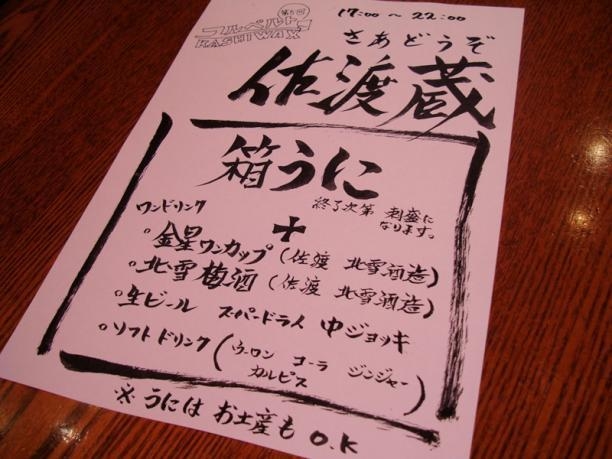 第5回
コルベルト!
KASHIWAX
17:00 ～ 22:00
さあどうぞ
佐渡蔵
箱うに
終了次第 刺盛に
なります。
ワンドリンク
+
○金星ワンカップ(佐渡 北雪酒造)
○北雪梅酒(佐渡 北雪酒造)
○生ビール スーパードライ 中ジョッキ
○ソフトドリンク(ウーロン コーラ ジンジャー
カルピス)
※うにはお土産もO.K